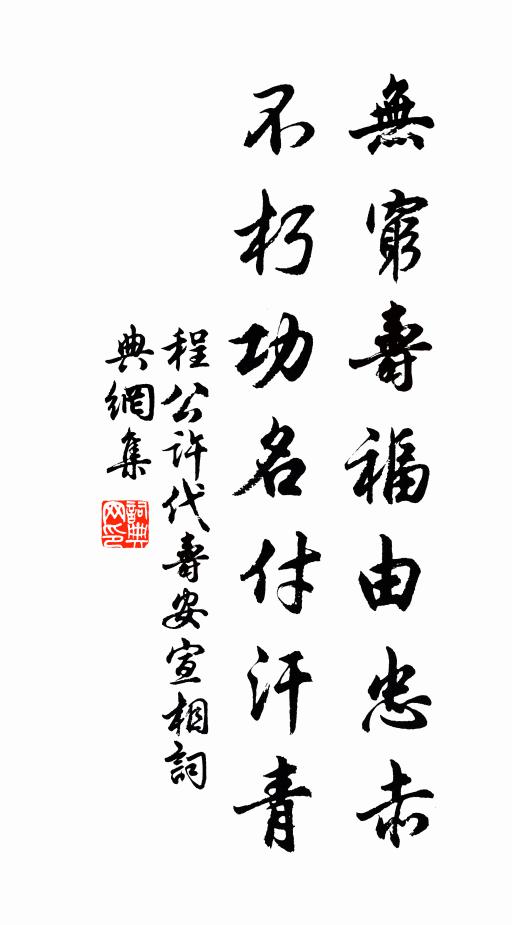 無窮壽福由忠赤
不朽功名付汗青
程公許代壽安宣相詞
典網集
詞典網印